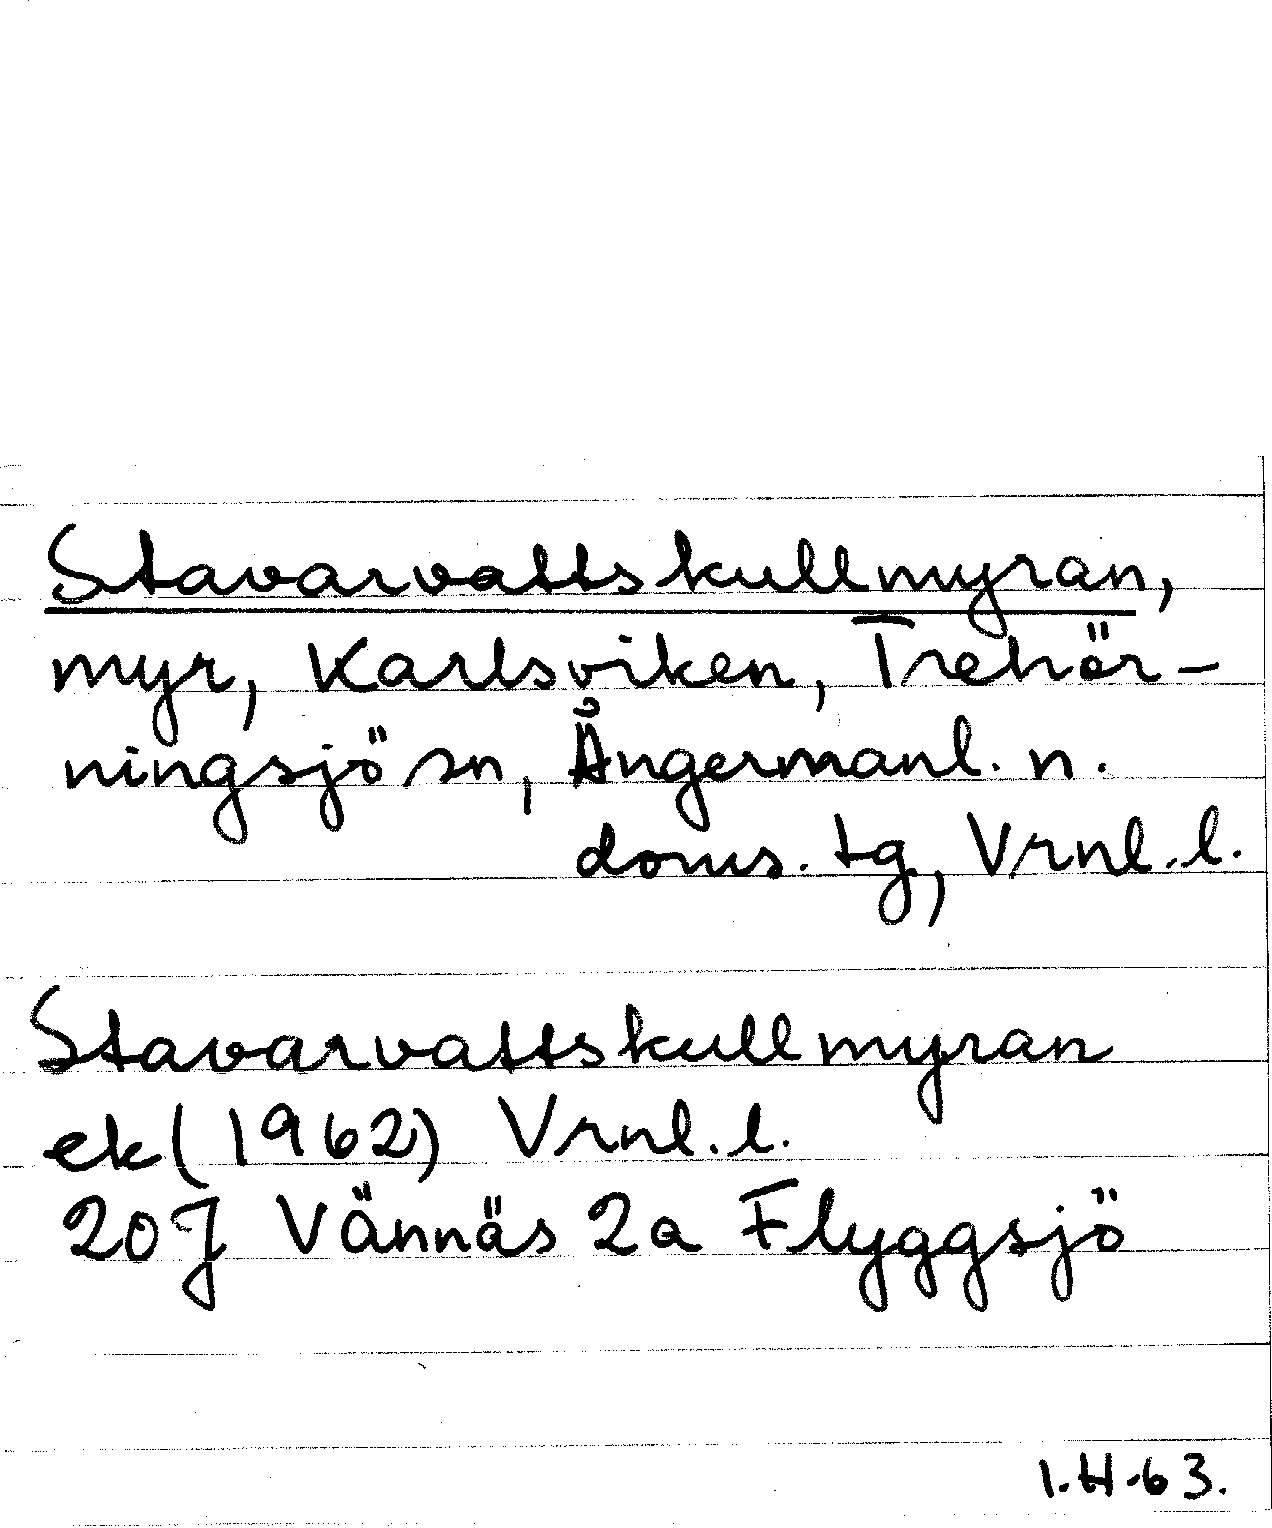 Stavarvattskullmyran,
myr, Karlsviken, Trehör-
ningsjö sn, Ångermanl. n.
doms. tg, Vrnl. l.
Stavarvattskullmyran
ek (1962) Vrnl. l.
20J Vännäs 2a Flyggsjö
I.H-63.